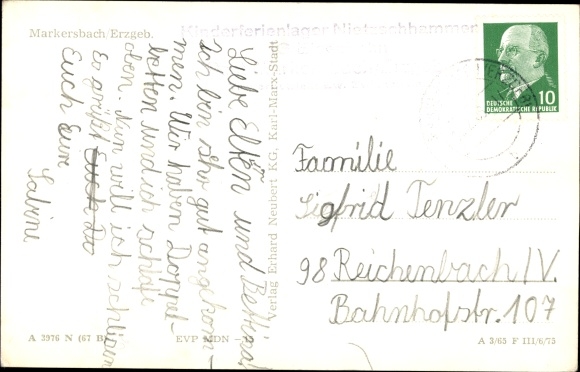 Markersbach/Erzgeb.
Kinderferienlager
Liebe Eltern und Bettina!
Ich bin sehr gut angekom-
men. Wir haben Doppel-
betten und ich schlafe
oben. Nun will ich schließen
Es grüßt Euch Da
Euch Eure
Sabine
Verlag Erhard Neubert KG, Karl-Marx-Stadt
A 3976 N (67 B)
EVP MDN
DEUTSCHE
DEMOKRATISCHE REPUBLIK
10
Familie
Sigfrid Tenzler
98 Reichenbach/V.
Bahnhofstr. 107
A 3/65 F III/6/75